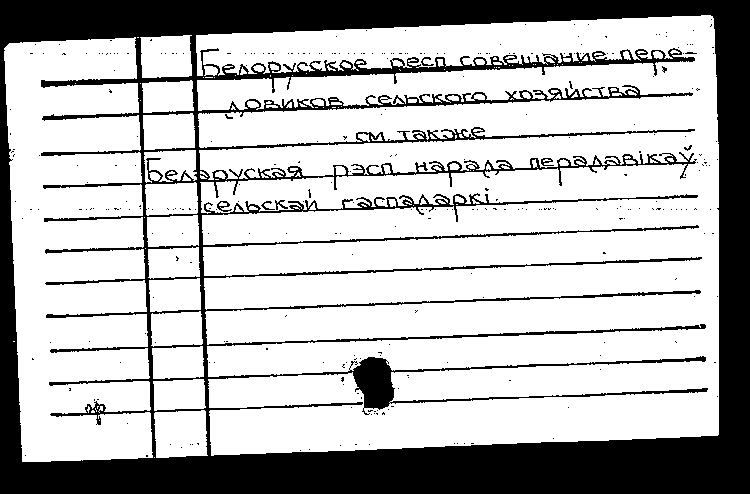 Белорусское респ. совещание пере-
довиков сельского хозяйства
см. также
Беларуская рэсп. нарада перадавікаў
сельскай гаспадаркі.